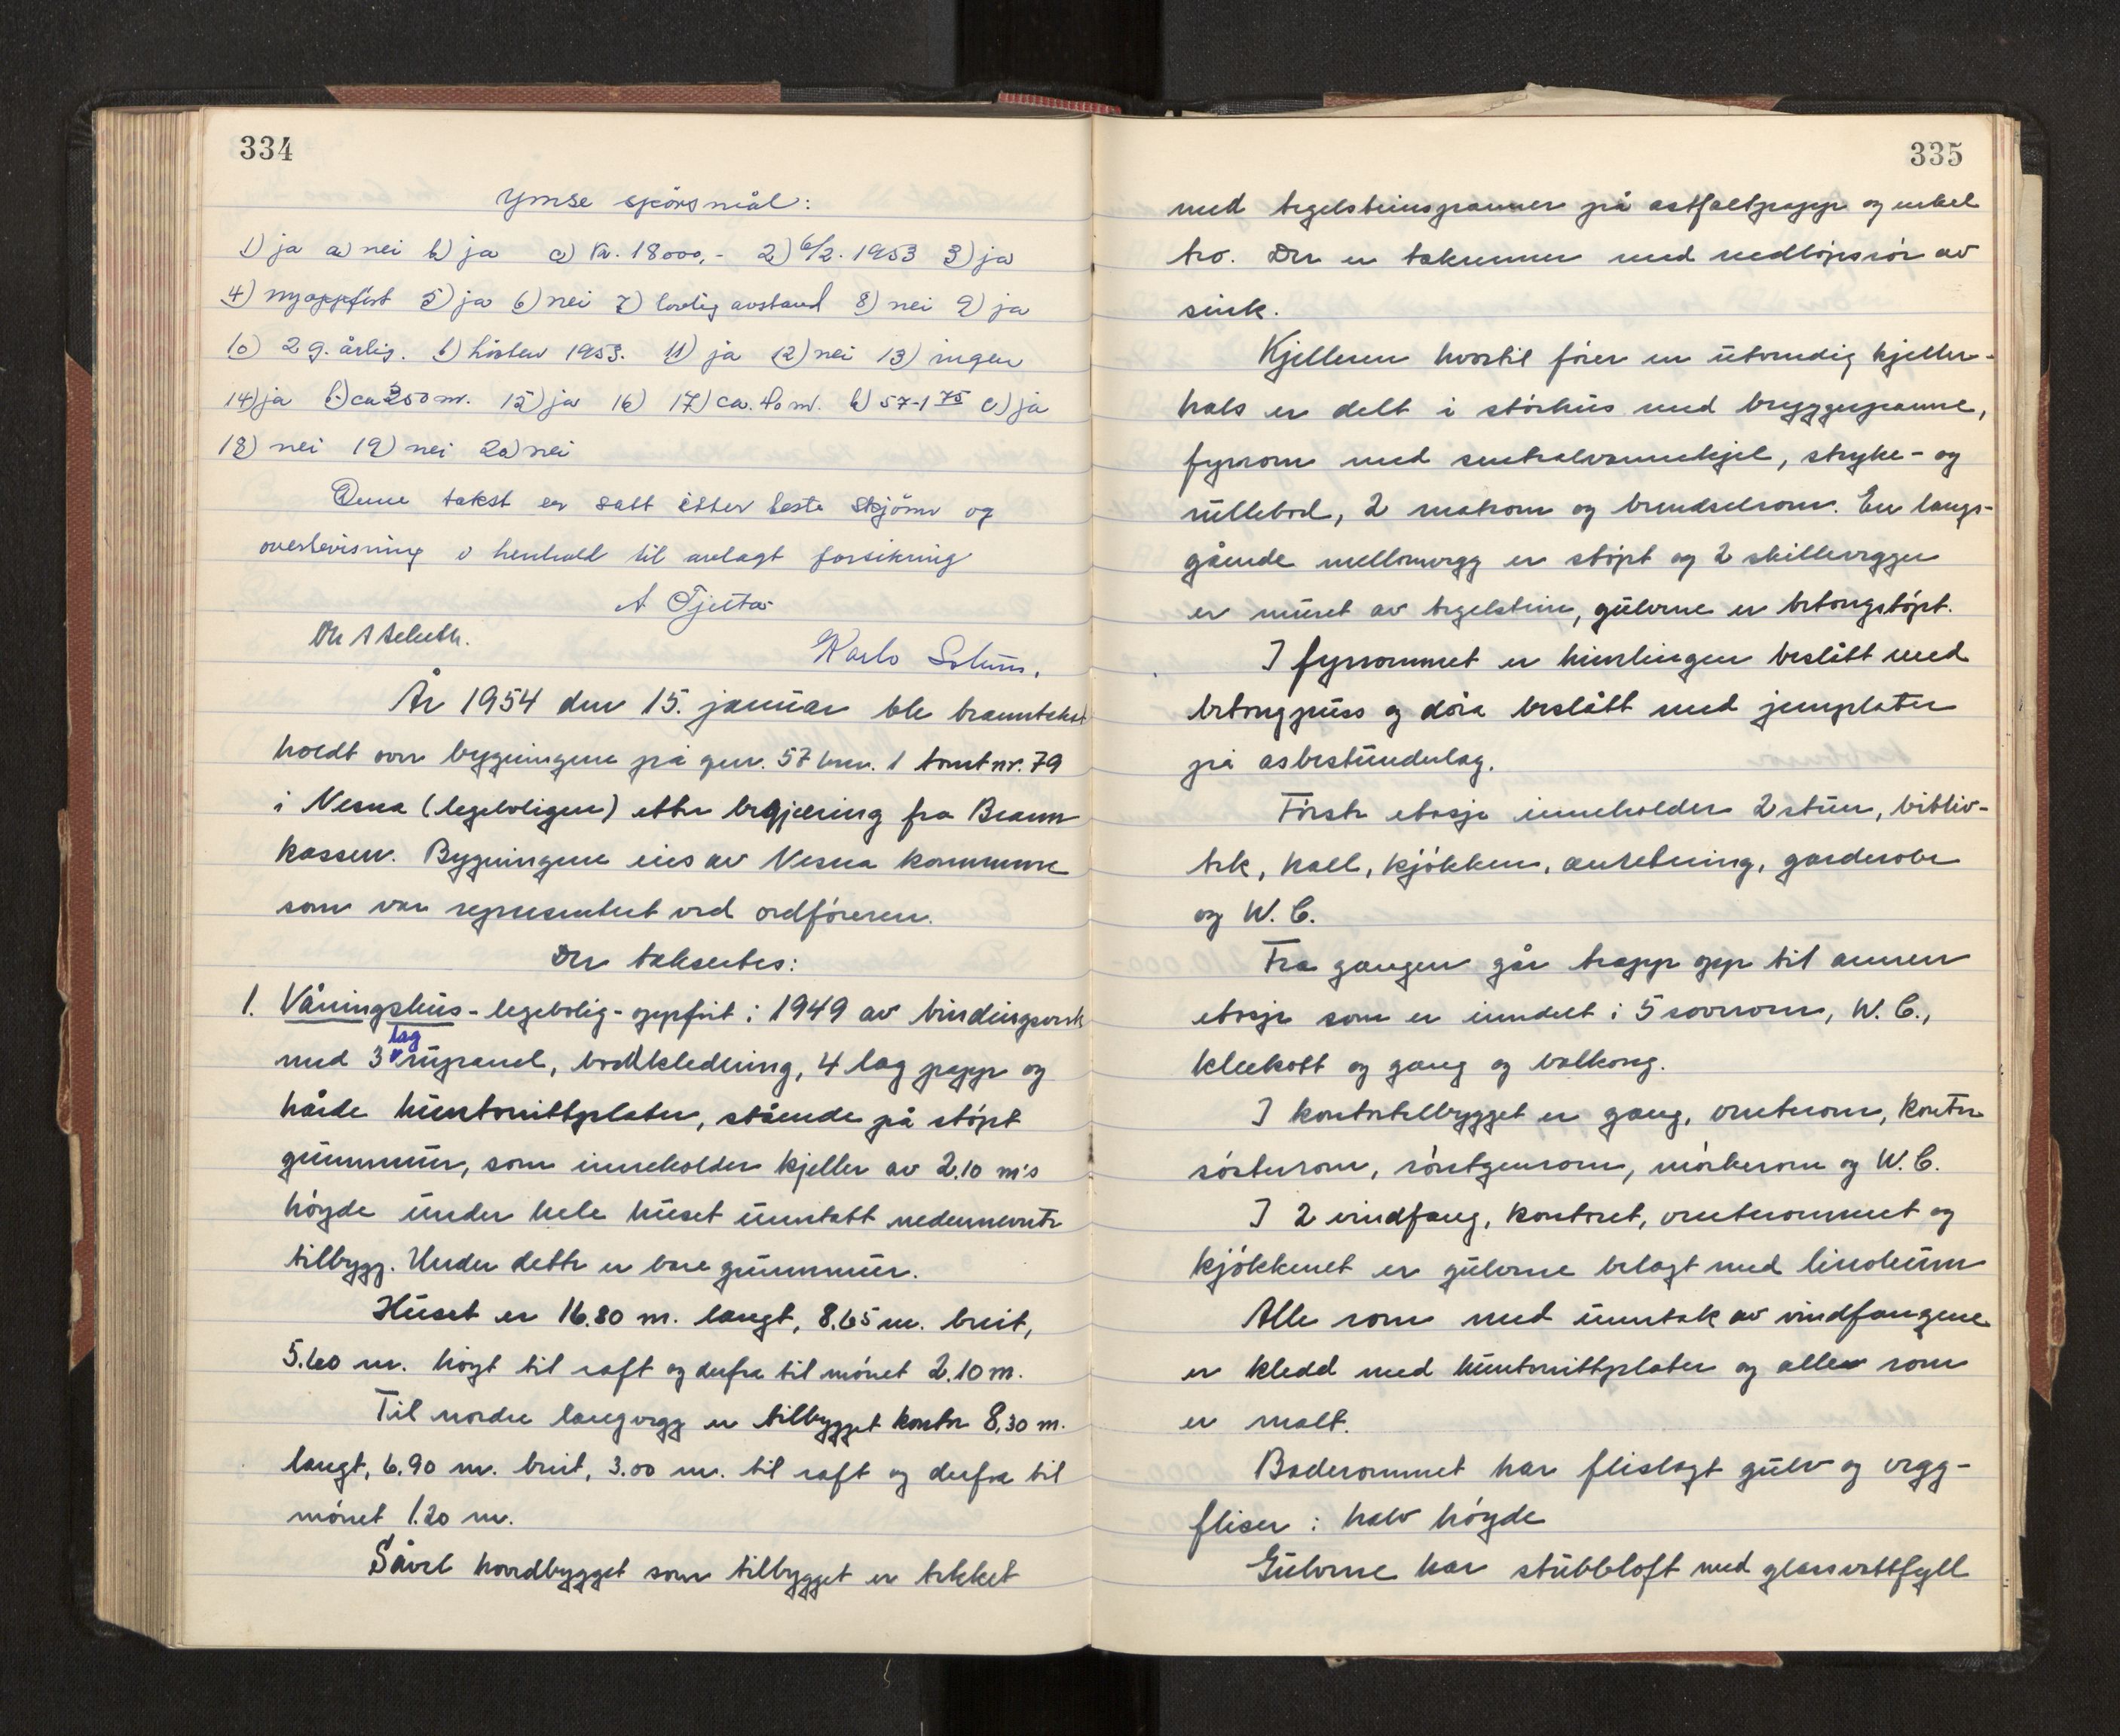 334
Ymse spörsmål:
1) ja a) nei b) ja c) kr. 18000,- 2) 6/2. 1953 3) ja
4) nyoppfört 5) ja 6) nei 7) lovlig avstand 8) nei 9) ja
10) 2 g. årlig. b) hösten 1953. 11) ja 12) nei 13) ingen
14) ja b) ca 250 m. 15) ja 16) 17) ca. 40 m. b) 57-1 75 c) ja
18) nei 19) nei 20) nei
Denne takst er satt etter beste skjönn og
overbevisning i henhold til avlagt forsikring
A Tjetta
Karlo Solum.
År 1954 den 15. januar ble branntakst
holdt over bygningene på gnr. 57 bnr. 1 tomt nr. 79
i Nesna (legeboligen) etter begjæring fra Brann
kassen. Bygningene eies av Nesna kommune
som var representert ved ordføreren.
Der taksertes:
1. Våningshus - legebolig - oppført i 1949 av bindingsverk
lag
med 3 rupanel, bordkledning, 4 lag papp og
hårde huntonittplater, stående på støpt
grunnmur, som inneholder kjeller av 2.10 m's
høyde under hele huset unntatt nedennevnte
tilbygg. Under dette er bare grunnmur.
Huset er 16.80 m. langt, 8.65 m. breit,
5.60 m. høgt til raft og derfra til mønet 2.10 m.
Til nordre langvegg er tilbygget kontor 8,30 m.
langt, 6.90 m. breit, 3.00 m. til raft og derfra til
mønet 1.20 m.
Såvel hovedbygget som tilbygget er tekket
335
med teglsteinspanner på astfaltpapp og enkel
tro. Der er takrenner med nedløpsrør av
sink.
Kjelleren hvortil fører en utvendig kjeller-
hals er delt i störhus med bryggepanne,
fyrrom med sentralvarmekjel, stryke- og
rullebod, 2 matrom og brendselrom. En langs-
gående mellomvegg er støpt og 2 skillevegger
er muret av teglstein, gulvene er betongstøpt.
I fyrrommet er himlingen beslått med
betongpuss og døra beslått med jernplater
på asbestunderlag.
Første etasje inneholder 2 stuer, bibliv-
tek, hall, kjøkken, anretning, garderobe
og W. C.
Fra gangen går trapp opp til annen
etasje som er inndelt i 5 soverom, W. C.,
kleskott og gang og balkong.
I kontortilbygget er gang, venterom, kontor
søsterrom, røntgenrom, mørkerom og W. C.
I 2 vindfang, kontoret, venterommet og
kjøkkenet er gulvene belagt med linoleum
Alle rom med unntak av vindfangene
er kledd med huntonittplater og alle rom
er malt.
Baderommet har flislagt gulv og vegg-
fliser i halv høyde
Gulvene har stubbloft med glassvattfyll